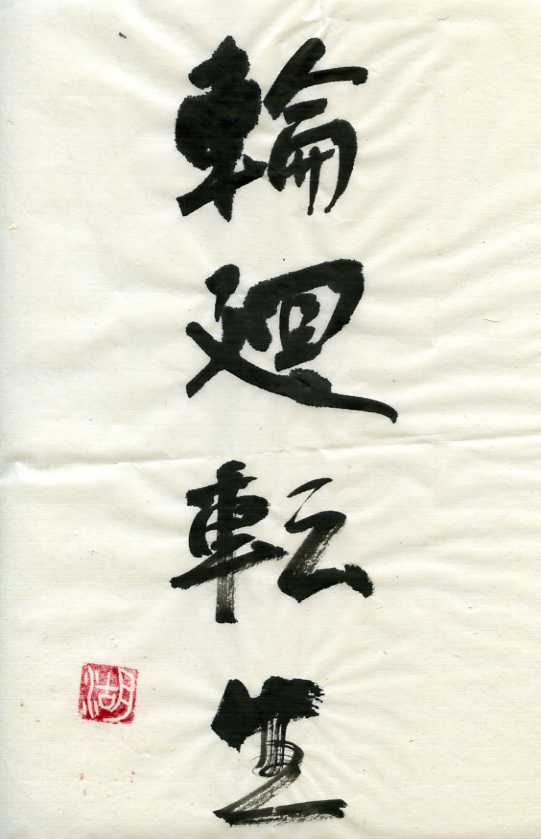 輪廻転生
湖